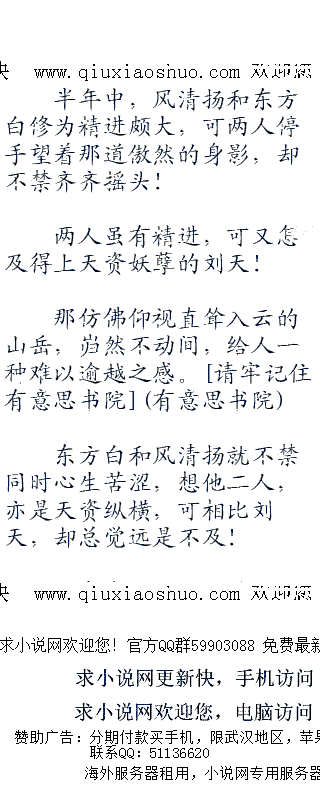 快 www.qiuxiaoshuo.com 欢迎您
半年中，风清扬和东方
白修为精进颇大，可两人停
手望着那道傲然的身影，却
不禁齐齐摇头！
两人虽有精进，可又怎
及得上天资妖孽的刘天！
那仿佛仰视直耸入云的
山岳，岿然不动间，给人一
种难以逾越之感。[请牢记住
有意思书院] (有意思书院)
东方白和风清扬就不禁
同时心生苦涩，想他二人，
亦是天资纵横，可相比刘
天，却总觉远是不及！
快 www.qiuxiaoshuo.com 欢迎您
求小说网欢迎您！官方QQ群59903088 免费最新
求小说网更新快，手机访问
求小说网欢迎您，电脑访问
赞助广告：分期付款买手机，限武汉地区，苹果
联系QQ：51136620
海外服务器租用，小说网专用服务器